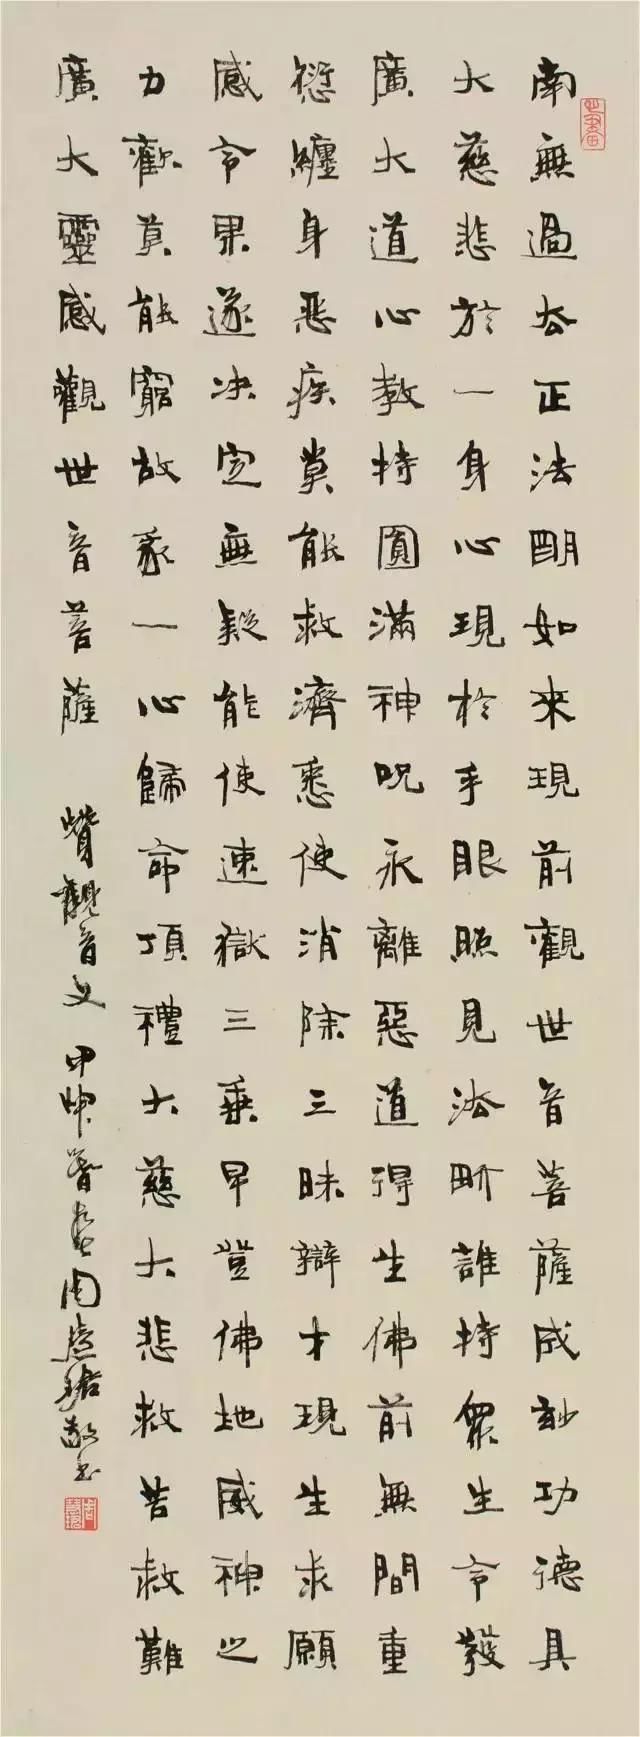 南無過去正法明如來現前觀世音菩薩成妙功德具
大慈悲於一身心現於手眼照見法界護持眾生令發
廣大道心教持圓滿神呪永離惡道得生佛前無間重
愆纏身惡疾莫能救濟悉使消除三昧辯才現生求願
感令果遂決定無疑能使速獄三乘早登佛地威神之
力歡莫能窮故我一心歸命頂禮大慈大悲救苦救難
廣大靈感觀世音菩薩
贊觀音文 甲申 周慧珺敬書
周慧珺